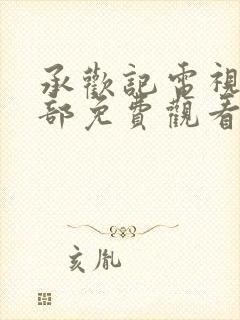 承歡記電視
部免費觀看
亥胤